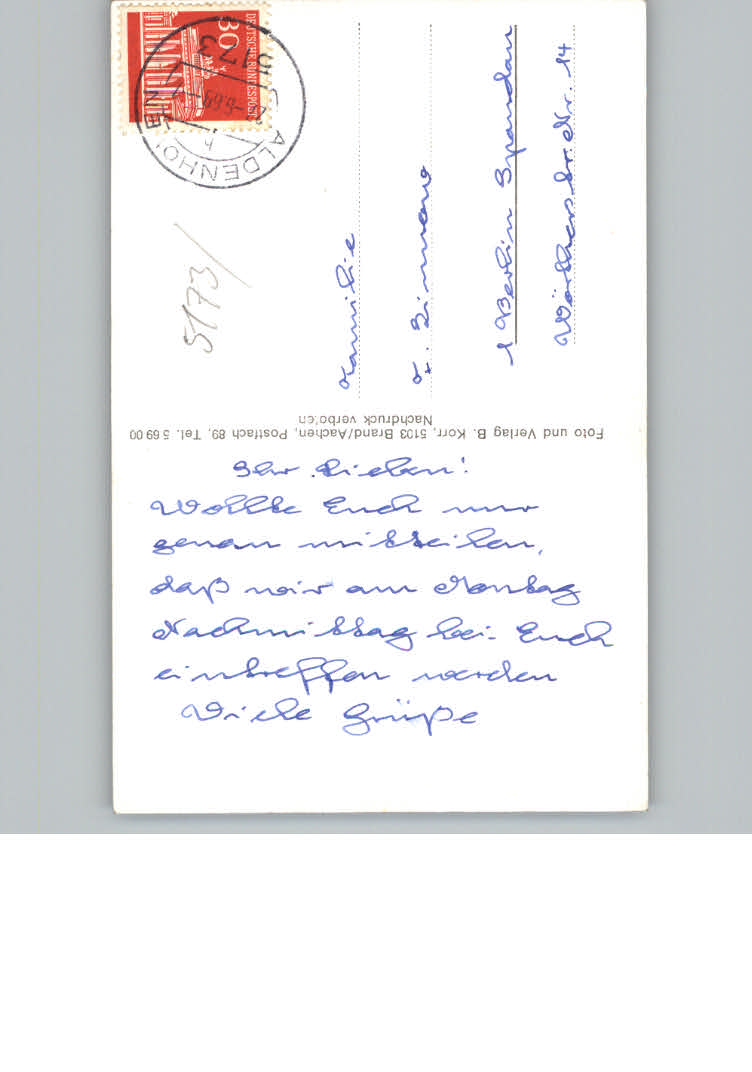 DEUTSCHE BUNDESPOST
30
5173 ALDENHOVEN
5173
Familie
F. Zimmer
1 Berlin Spandau
Nr. 14
Foto und Verlag B. Korr, 5103 Brand/Aachen, Postfach 89, Tel. 5 69 00
Nachdruck verboten
Ihr Lieben!
Wollte Euch nur
genau mitteilen,
daß wir am Montag
Nachmittag bei Euch
eintreffen werden
Viele Grüße